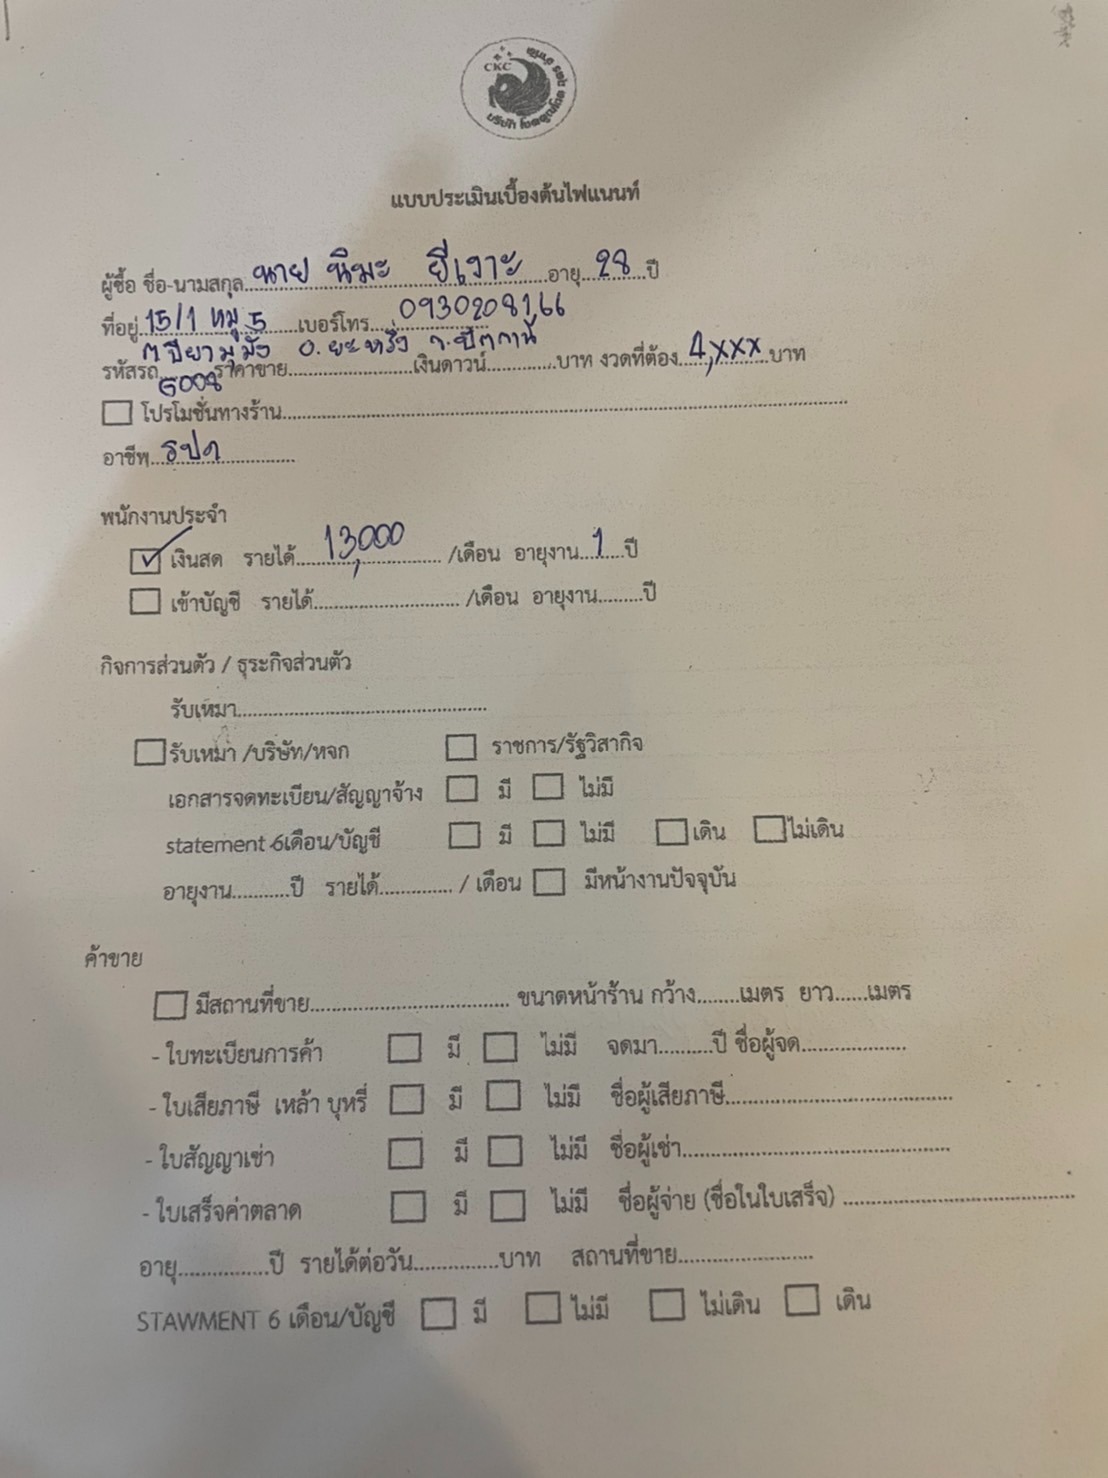 CKC
แบบประเมินเบื้องต้นไฟแนนท์
ผู้ซื้อ ชื่อ-นามสกุล นาย นิมะ ยีเงาะ อายุ 28 ปี
ที่อยู่ 15/1 หมู่ 5 เบอร์โทร 0930208166
ต.ปิยามุมัง อ.ยะหริ่ง จ.ปัตตานี
รหัสรถ G008 ราคาขาย....................เงินดาวน์..............บาท งวดที่ต้อง 4,xxx บาท
☐ โปรโมชั่นทางร้าน
อาชีพ รปภ
พนักงานประจำ
☑ เงินสด รายได้ 13,000 /เดือน อายุงาน 1 ปี
☐ เข้าบัญชี รายได้.......................... /เดือน อายุงาน.........ปี
กิจการส่วนตัว / ธุระกิจส่วนตัว
รับเหมา
☐ รับเหมา /บริษัท/หจก ☐ ราชการ/รัฐวิสากิจ
เอกสารจดทะเบียน/สัญญาจ้าง ☐ มี ☐ ไม่มี
statement 6เดือน/บัญชี ☐ มี ☐ ไม่มี ☐ เดิน ☐ ไม่เดิน
อายุงาน...........ปี รายได้.............. / เดือน ☐ มีหน้างานปัจจุบัน
ค้าขาย
☐ มีสถานที่ขาย.................................... ขนาดหน้าร้าน กว้าง........เมตร ยาว......เมตร
- ใบทะเบียนการค้า ☐ มี ☐ ไม่มี จดมา..........ปี ชื่อผู้จด...................
- ใบเสียภาษี เหล้า บุหรี่ ☐ มี ☐ ไม่มี ชื่อผู้เสียภาษี
- ใบสัญญาเช่า ☐ มี ☐ ไม่มี ชื่อผู้เช่า
- ใบเสร็จค่าตลาด ☐ มี ☐ ไม่มี ชื่อผู้จ่าย (ชื่อในใบเสร็จ)
อายุ................ปี รายได้ต่อวัน...............บาท สถานที่ขาย
STAWMENT 6 เดือน/บัญชี ☐ มี ☐ ไม่มี ☐ ไม่เดิน ☐ เดิน